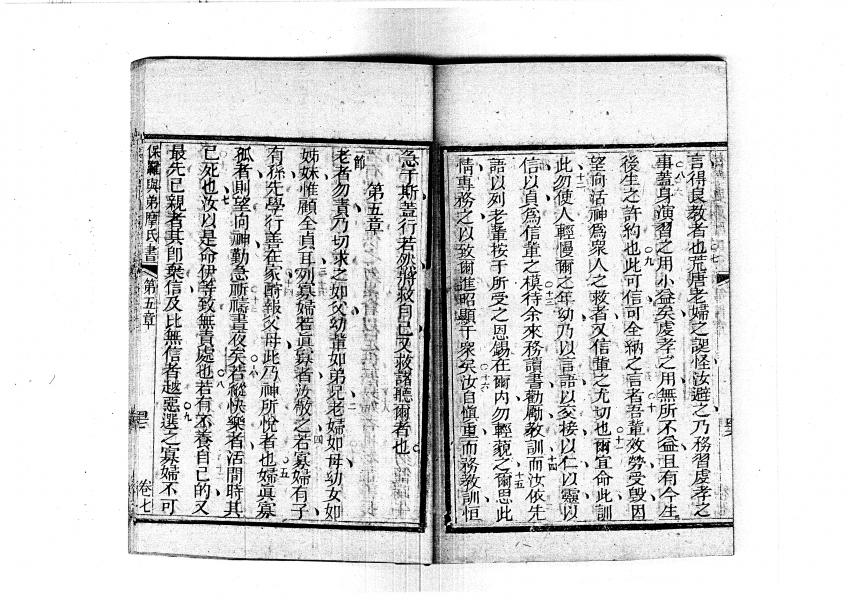 言得良教者也荒唐老婦之誕怪汝避之乃務習虔孝之
事蓋身演習之用小益矣虔孝之用無所不益且有今生
後生之許約也此可信可全納之言者吾輩效勞受毀因
望向活神為眾人之救者又信輩之尤切也爾宜命此訓
此勿使人輕慢爾之年幼乃以言語以交接以仁以靈以
信以貞為信輩之模待余來務讀書勸勵教訓而汝依先
語以列老輩按于所受之恩錫在爾內勿輕藐之爾思此
情專務之以致爾進昭顯于眾矣汝自慎重而務教訓恒
急于斯蓋行若然將救自己又救諸聽爾者也
第五章
一節
老者勿責乃切求之如父幼輩如弟兄老婦如母幼女如
姊妹惟顧全貞耳列寡婦若真寡者汝敬之若寡婦有子
有孫先學行善在家酬報父母此乃神所悅者也婦真寡
孤者則望向神勤急祈禱晝夜矣若縱快樂者活間時其
已死也汝以是命伊等致無責處也若有不養自己的又
最先已親者其即棄信及比無信者越惡選之寡婦不可
保羅與弟摩氏書
第五章
卷七